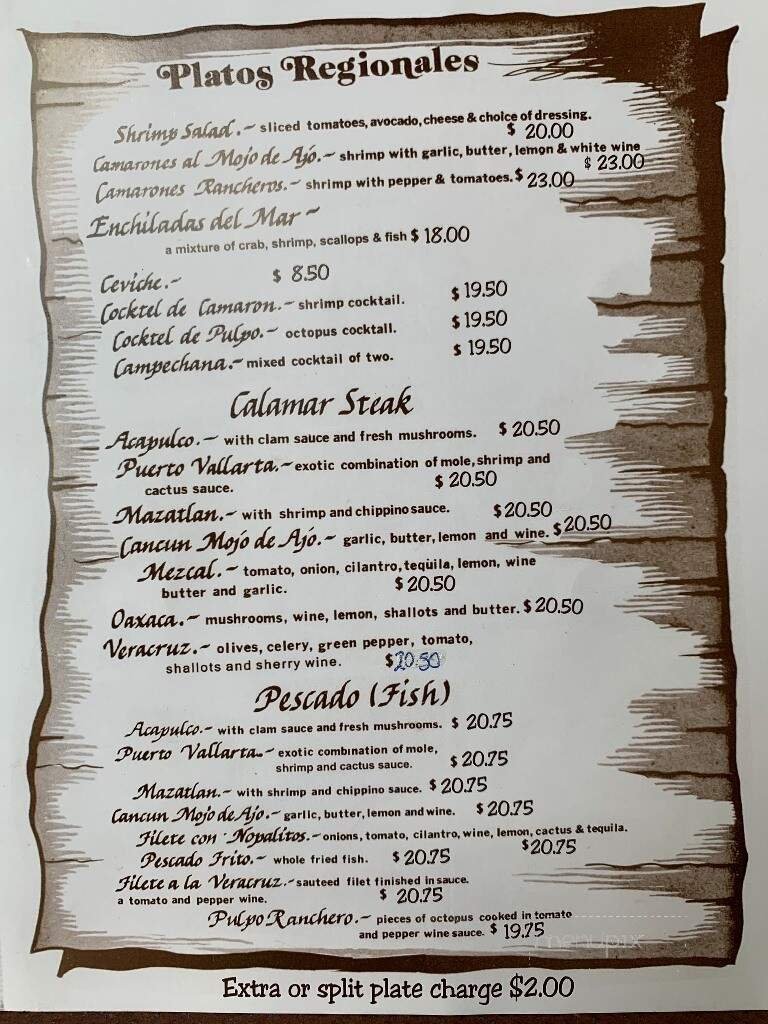 Platos Regionales
Shrimp Salad.~ sliced tomatoes, avocado, cheese & choice of dressing.
$ 20.00
Camarones al Mojo de Ajo.~ shrimp with garlic, butter, lemon & white wine
$ 23.00
Camarones Rancheros.~ shrimp with pepper & tomatoes. $ 23.00
Enchiladas del Mar ~
a mixture of crab, shrimp, scallops & fish $ 18.00
Ceviche.- $ 8.50
Cocktel de Camaron.~ shrimp cocktail. $ 19.50
Cocktel de Pulpo.~ octopus cocktail. $ 19.50
Campechana.~ mixed cocktail of two. $ 19.50
Calamar Steak
Acapulco.~ with clam sauce and fresh mushrooms. $ 20.50
Puerto Vallarta.~ exotic combination of mole, shrimp and
cactus sauce. $ 20.50
Mazatlan.~ with shrimp and chippino sauce. $ 20.50
Cancun Mojo de Ajo.~ garlic, butter, lemon and wine. $ 20.50
Mezcal.~ tomato, onion, cilantro, tequila, lemon, wine
butter and garlic. $ 20.50
Oaxaca.~ mushrooms, wine, lemon, shallots and butter. $ 20.50
Veracruz.~ olives, celery, green pepper, tomato,
shallots and sherry wine. $20.50
Pescado (Fish)
Acapulco.~ with clam sauce and fresh mushrooms. $ 20.75
Puerto Vallarta.~ exotic combination of mole,
shrimp and cactus sauce. $ 20.75
Mazatlan.~ with shrimp and chippino sauce. $ 20.75
Cancun Mojo de Ajo.~ garlic, butter, lemon and wine. $ 20.75
Filete con Nopalitos.~ onions, tomato, cilantro, wine, lemon, cactus & tequila.
$20.75
Pescado Frito.~ whole fried fish. $ 20.75
Filete a la Veracruz.~ sauteed filet finished in sauce.
a tomato and pepper wine. $ 20.75
Pulpo Ranchero.~ pieces of octopus cooked in tomato
and pepper wine sauce. $ 19.75
menupix
Extra or split plate charge $2.00